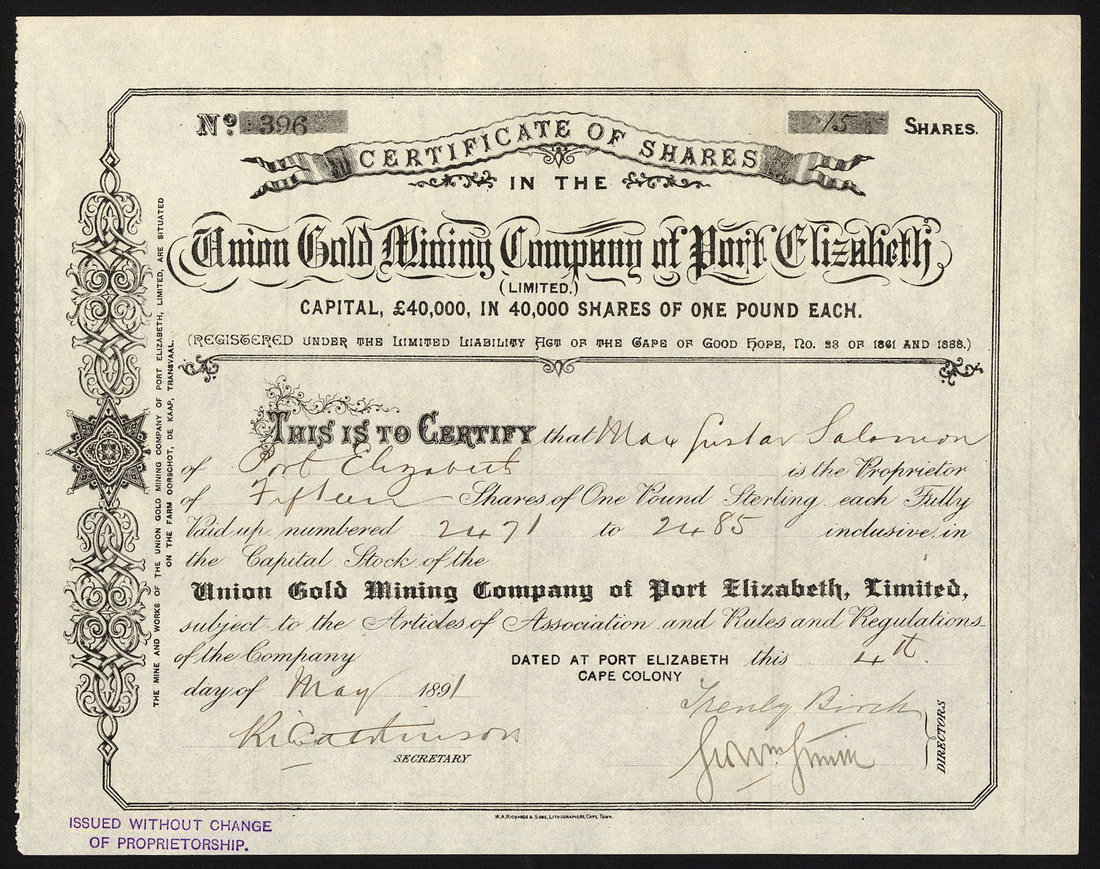 Nº 396
15 SHARES.
CERTIFICATE OF SHARES
IN THE
Union Gold Mining Company of Port Elizabeth
(LIMITED.)
CAPITAL, £40,000, IN 40,000 SHARES OF ONE POUND EACH.
(REGISTERED UNDER THE LIMITED LIABILITY ACT OF THE CAPE OF GOOD HOPE, NO. 23 OF 1861 AND 1888.)
THE MINE AND WORKS OF THE UNION GOLD MINING COMPANY OF PORT ELIZABETH, LIMITED, ARE SITUATED
ON THE FARM OORSCHOT, DE KAAP, TRANSVAAL.
THIS IS TO CERTIFY that Max Gustav Salomon
of Port Elizabeth is the Proprietor
of Fifteen Shares of One Pound Sterling each Fully
Paid up numbered 2471 to 2485 inclusive, in
the Capital Stock of the
Union Gold Mining Company of Port Elizabeth, Limited,
subject to the Articles of Association and Rules and Regulations
of the Company DATED AT PORT ELIZABETH this 4th
CAPE COLONY
day of May 1891
Henly Birch
Geo Wm Smith
DIRECTORS
SECRETARY
W.A. RICHARDS & SONS, LITHOGRAPHERS, CAPE TOWN.
ISSUED WITHOUT CHANGE
OF PROPRIETORSHIP.